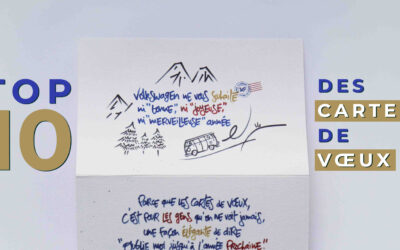 TOP
10
DES
CARTE
DE
VŒUX
Volkswagen ne vous souhaite
ni "bonne", ni "joyeuse",
ni "merveilleuse" année
Parce que les cartes de vœux,
c'est pour les gens qu'on ne voit jamais,
une façon élégante de dire
jusqu'à l'année prochaine"